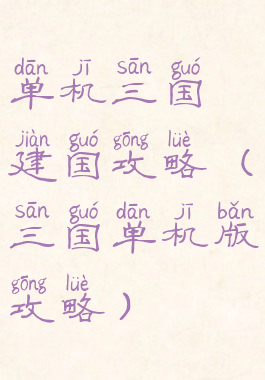 dān jī sān guó
单机三国
jiàn guó gōng lüè
建国攻略（
sān guó dān jī bǎn
三国单机版
gōng lüè
攻略）